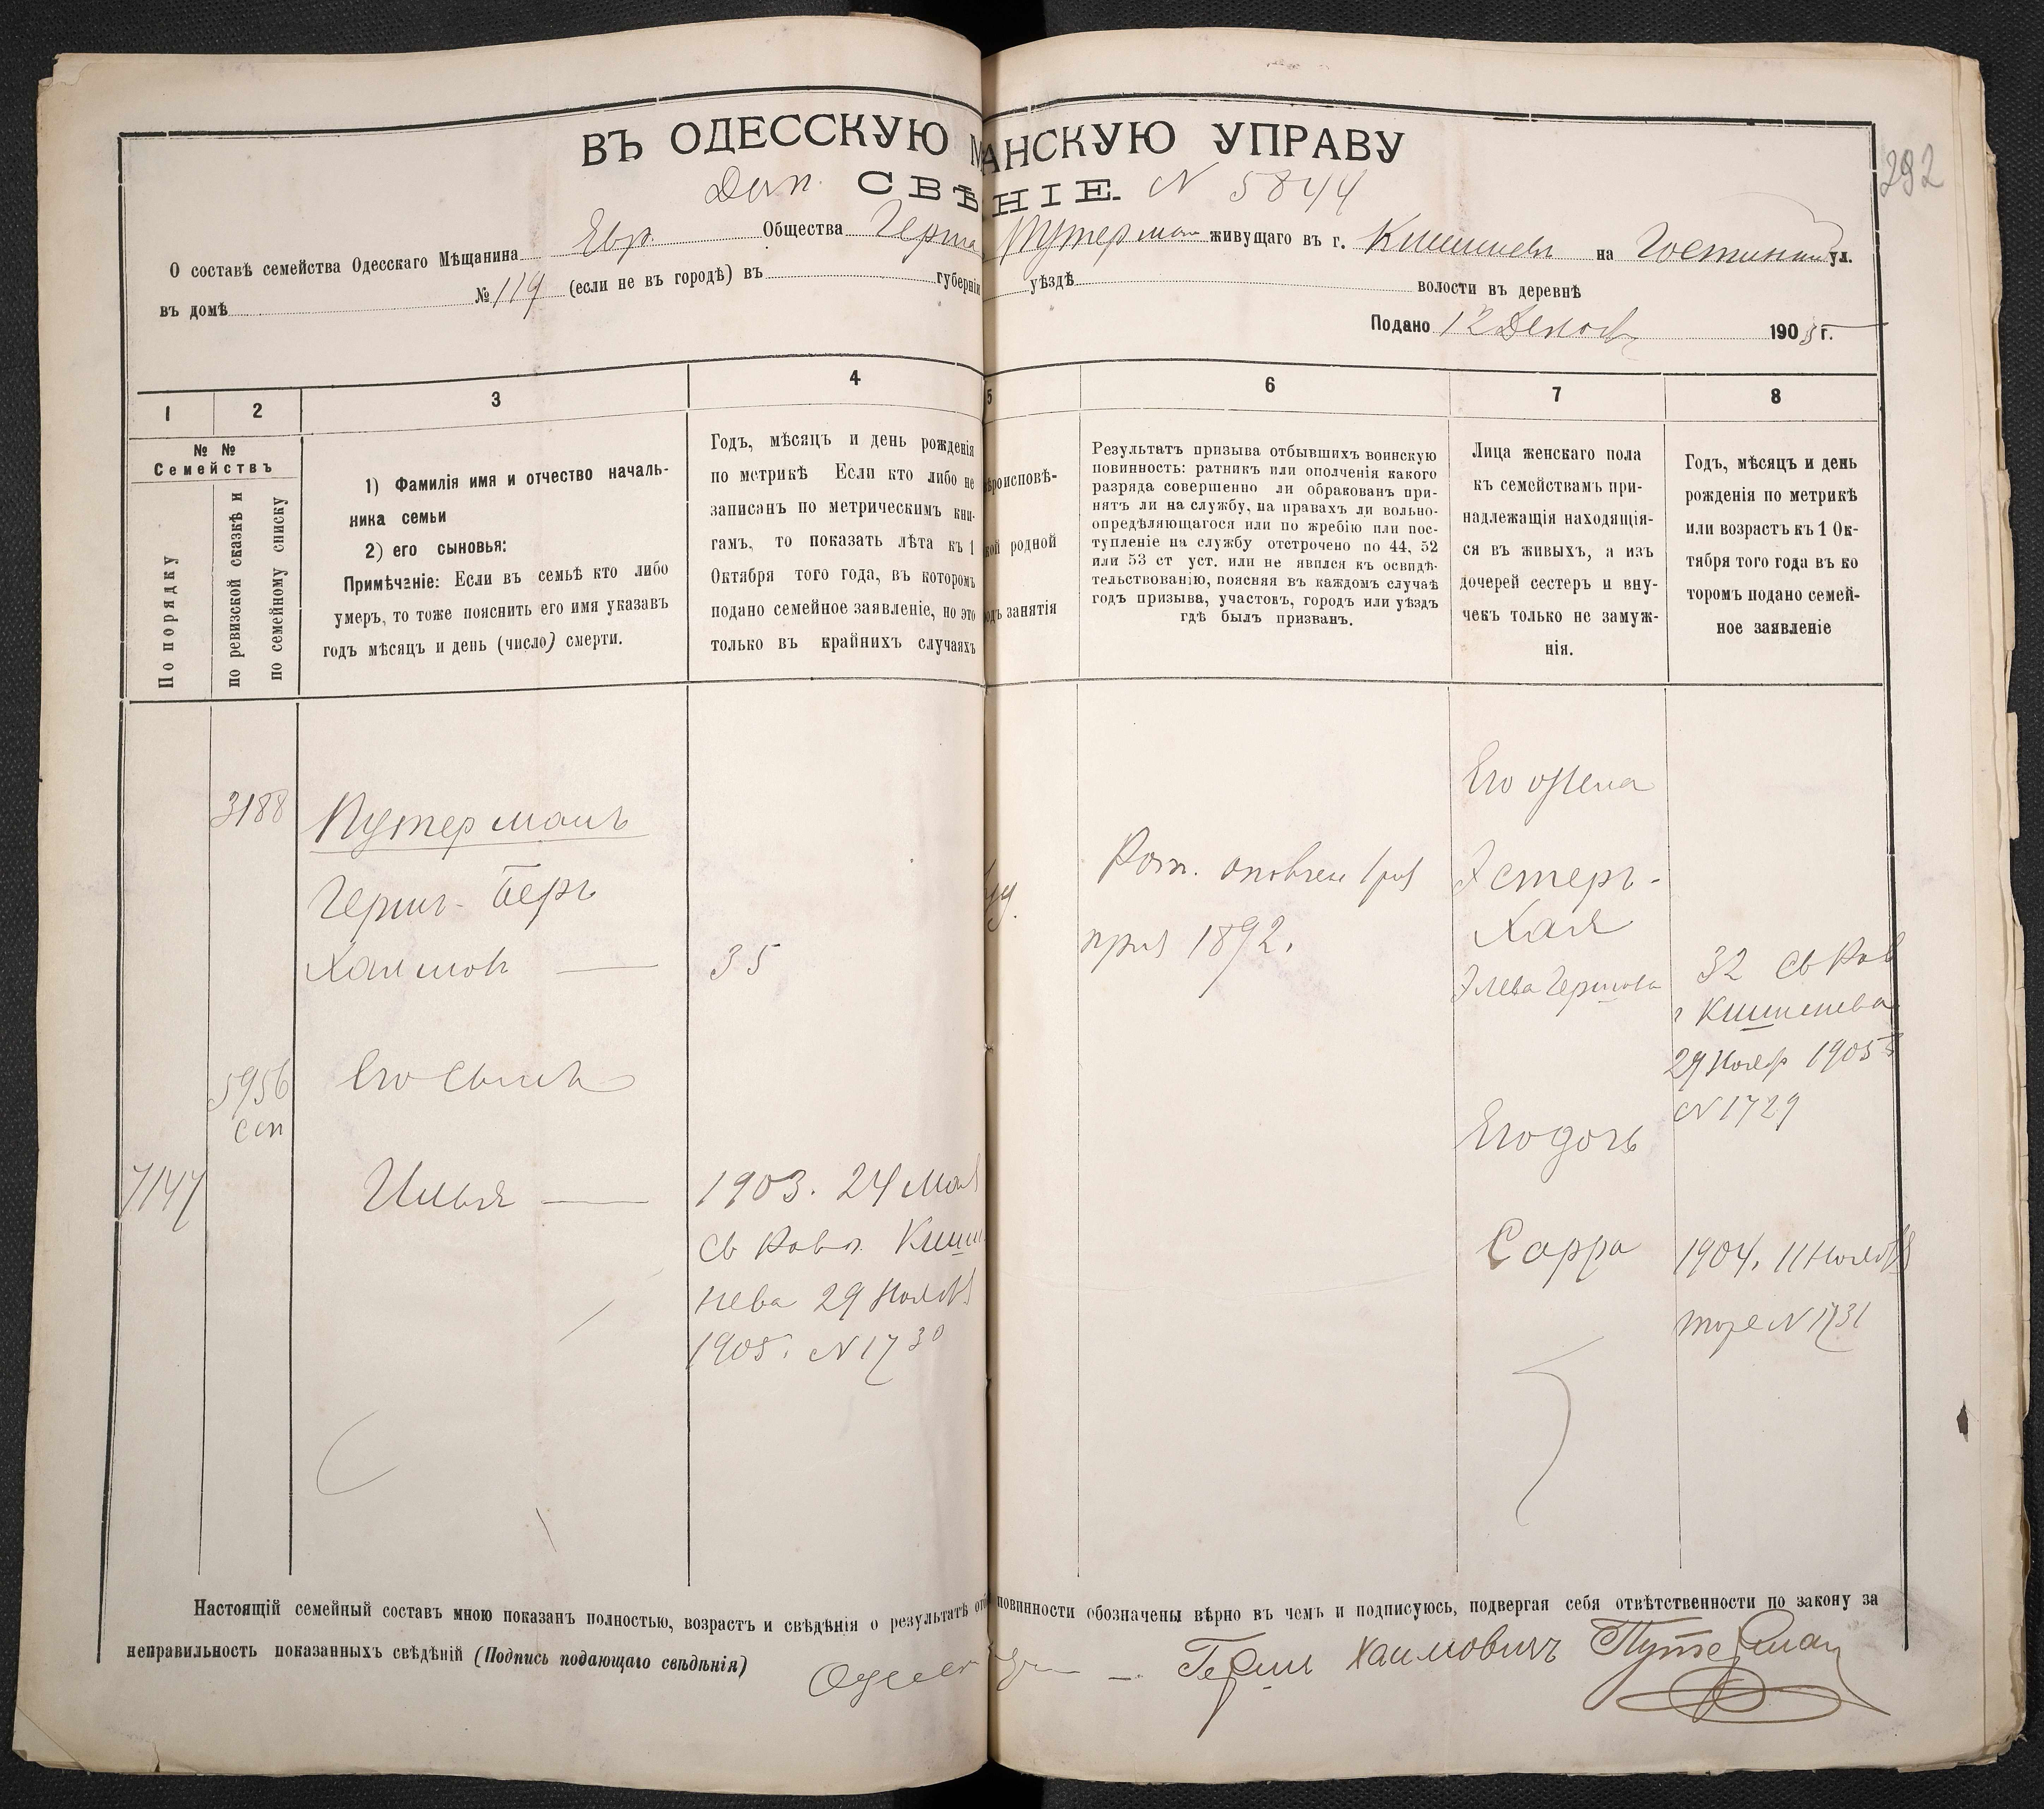 ВЪ ОДЕССКУЮ М АНСКУЮ УПРАВУ
292
Доп. СВѢ НІЕ. N 5844
О составѣ семейства Одесскаго Мѣщанина Евр. Общества Герша Путерман живущаго въ г. Кишиневѣ на ул.
въ домѣ № 119 (если не въ городѣ) въ губерніи уѣздѣ волости въ деревнѣ
Подано 12 1905 г.
1 2 3 4 5 6 7 8
№ №
Семействъ
По порядку
по ревизской сказкѣ и
по семейному списку
1) Фамилія имя и отчество началь-
ника семьи
2) его сыновья:
Примѣчаніе: Если въ семьѣ кто либо
умеръ, то тоже пояснить его имя указавъ
годъ мѣсяцъ и день (число) смерти.
Годъ, мѣсяцъ и день рожденія
по метрикѣ Если кто либо не
записанъ по метрическимъ кни-
гамъ, то показать лѣта къ 1
Октября того года, въ которомъ
подано семейное заявленіе, но это
только въ крайнихъ случаяхъ
ѣроисповѣ-
кой родной
одъ занятія
Результатъ призыва отбывшихъ воинскую
повинность: ратникъ или ополченія какого
разряда совершенно ли обракованъ при-
нятъ ли на службу, на правахъ ли вольно-
опредѣляющагося или по жребію или пос-
тупленіе на службу отстрочено по 44, 52
или 53 ст уст. или не явился къ освидѣ-
тельствованію, поясняя въ каждомъ случаѣ
годъ призыва, участокъ, городъ или уѣздъ
гдѣ былъ призванъ.
Лица женскаго пола
къ семействамъ при-
надлежащія находящія-
ся въ живыхъ, а изъ
дочерей сестеръ и вну-
чекъ только не замуж-
нія.
Годъ, мѣсяцъ и день
рожденія по метрикѣ
или возрастъ къ 1 Ок-
тября того года въ ко
торомъ подано семей-
ное заявленіе
3188
Путерманъ
Гершъ-Беръ
Хаимовъ — 35
5956
сп
Его сынъ
7147
Илья — 1903. 24 Мая
св Равв. Киши
нева 29 Ноября
1905. N 1730
Рат. ополчен 1 раз
приз 1892.
Его жена
Эстеръ-
Хая
32 св Рав
г Кишинева
29 Нояб 1905
N 1729
Его дочь
Сарра 1904. 11 Ноября
тоже N 1731
Настоящій семейный составъ мною показанъ полностью, возрастъ и свѣдѣнія о результатѣ отб повинности обозначены вѣрно въ чемъ и подписуюсь, подвергая себя отвѣтственности по закону за
неправильность показанныхъ свѣдѣній (Подпись подающаго свѣдѣнія) Герш Хаимовичъ Путерман